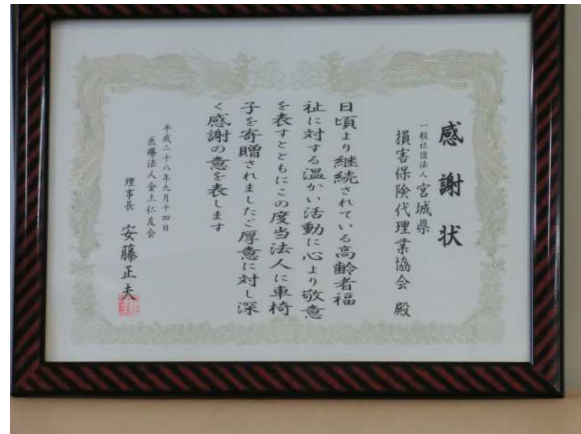 感謝状
一般社団法人 宮城県
損害保険代理業協会 殿
日頃より継続されている高齢者福
祉に対する温かい活動に心より敬意
を表すとともにこの度当法人に車椅
子を寄贈されましたご厚意に対し深
く感謝の意を表します
平成二十八年九月十四日
医療法人金上仁友会
理事長 安藤正夫